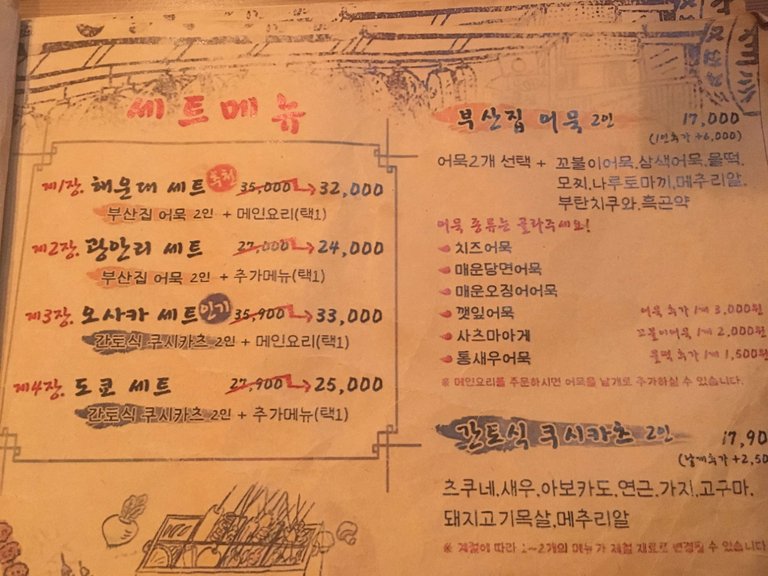 세트메뉴
제1장. 해운대 세트 추천 35,000 → 32,000
부산집 어묵 2인 + 메인요리(택1)
제2장. 광안리 세트 27,000 → 24,000
부산집 어묵 2인 + 추가메뉴(택1)
제3장. 오사카 세트 인기 35,900 → 33,000
간토식 쿠시카츠 2인 + 메인요리(택1)
제4장. 도쿄 세트 27,900 → 25,000
간토식 쿠시카츠 2인 + 추가메뉴(택1)
부산집 어묵 2인 17,000
(1인추가 +6,000)
어묵2개 선택 + 꼬불이어묵.삼색어묵.물떡.
모찌.나루토마끼.메추리알.
부탄치쿠와.흑곤약
어묵 종류는 골라주세요!
치즈어묵
매운당면어묵
매운오징어어묵
깻잎어묵 어묵 추가 1개 3,000원
사츠마아게 꼬불이어묵 1개 2,000원
통새우어묵 물떡 추가 1개 1,500원
※ 메인요리를 주문하시면 어묵을 낱개로 추가하실 수 있습니다.
간토식 쿠시카츠 2인 17,90
(낱개추가 +2,50
츠쿠네.새우.아보카도.연근.가지.고구마.
돼지고기목살.메추리알
※ 계절에 따라 1~2개의 메뉴가 제철 재료로 변경될 수 있습니다